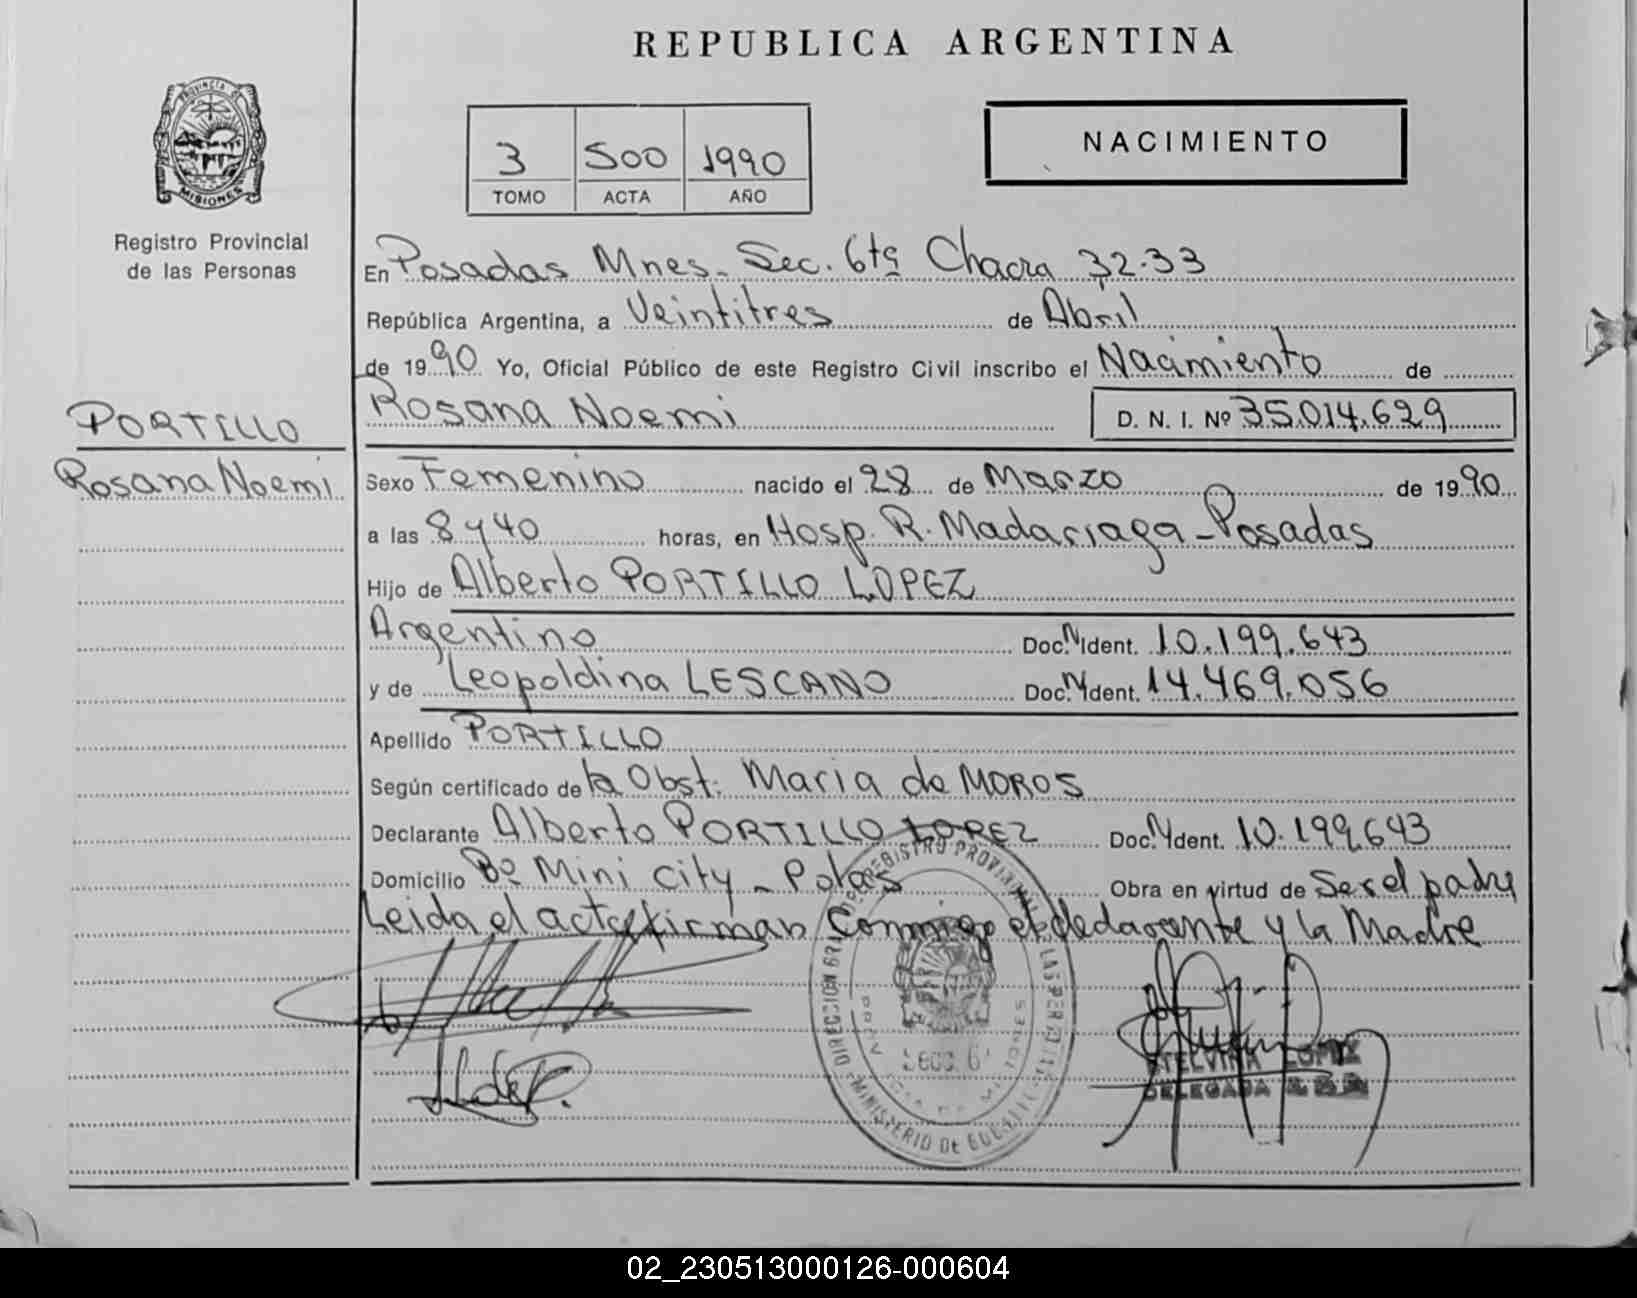 REPUBLICA ARGENTINA
PROVINCIA DE MISIONES
Registro Provincial
de las Personas
3 500 1990
TOMO ACTA AÑO
NACIMIENTO
En Posadas Mnes. Sec. 6ta Chacra 32-33
República Argentina, a Veintitres de Abril
de 1990 Yo, Oficial Público de este Registro Civil inscribo el Nacimiento de
Rosana Noemi D. N. I. Nº 35.014.629
PORTILLO
Rosana Noemi
Sexo Femenino nacido el 28 de Marzo de 1990
a las 8 y 40 horas, en Hosp. R. Madariaga - Posadas
Hijo de Alberto PORTILLO LOPEZ
Argentino Doc. N Ident. 10.199.643
y de Leopoldina LESCANO Doc. N Ident. 14.469.056
Apellido PORTILLO
Según certificado de la Obst. Maria de MOROS
Declarante Alberto PORTILLO LOPEZ Doc. N Ident. 10.199.643
Domicilio Bº Mini City - Pdas Obra en virtud de Ser el padre
Leida el acta firman Conmigo el declarante y la Madre
DIRECCION GRAL. DE REGISTRO PROVINCIAL DE LAS PERSONAS
MINISTERIO DE
SECC. 6
ETELVINA
DELEGADA
02_230513000126-000604